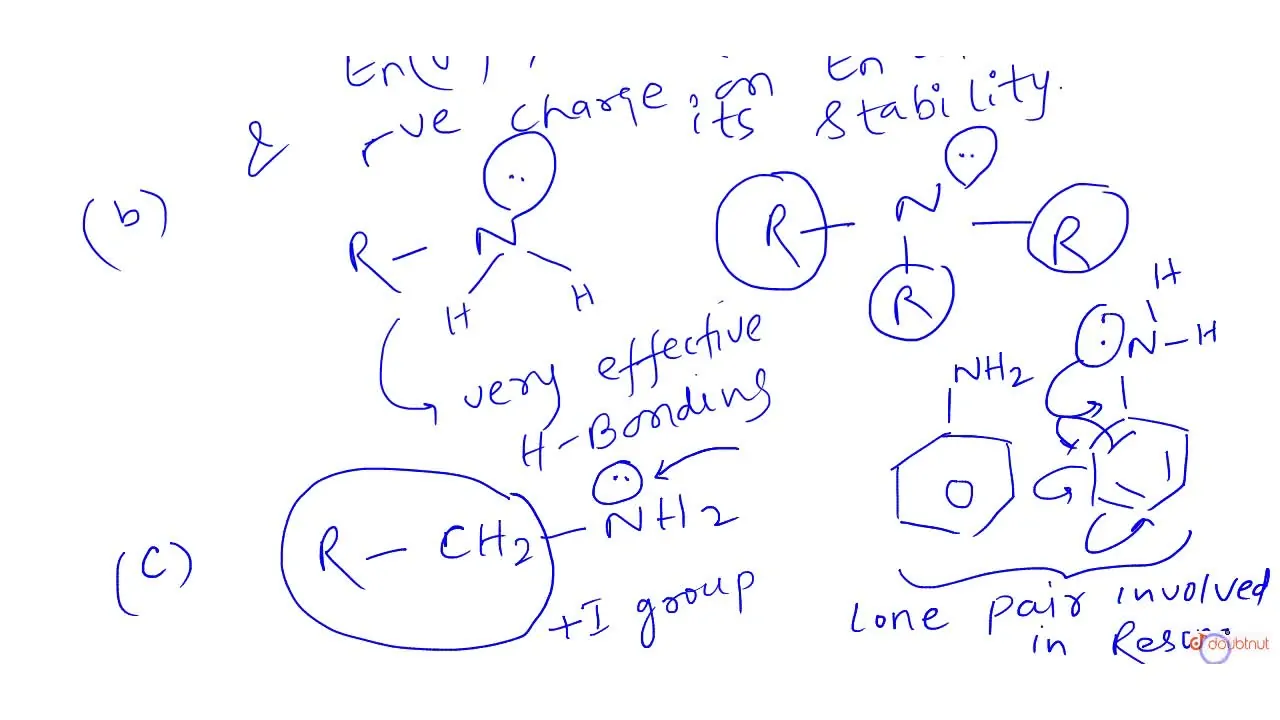 & rve charge, on
its stability.
(b)
R - N
H H
R - N - R
R
very effective
H-Bonding
NH2
H
N-H
(c)
R - CH2 - NH2
+I group
Lone pair involved
in
doubtnut